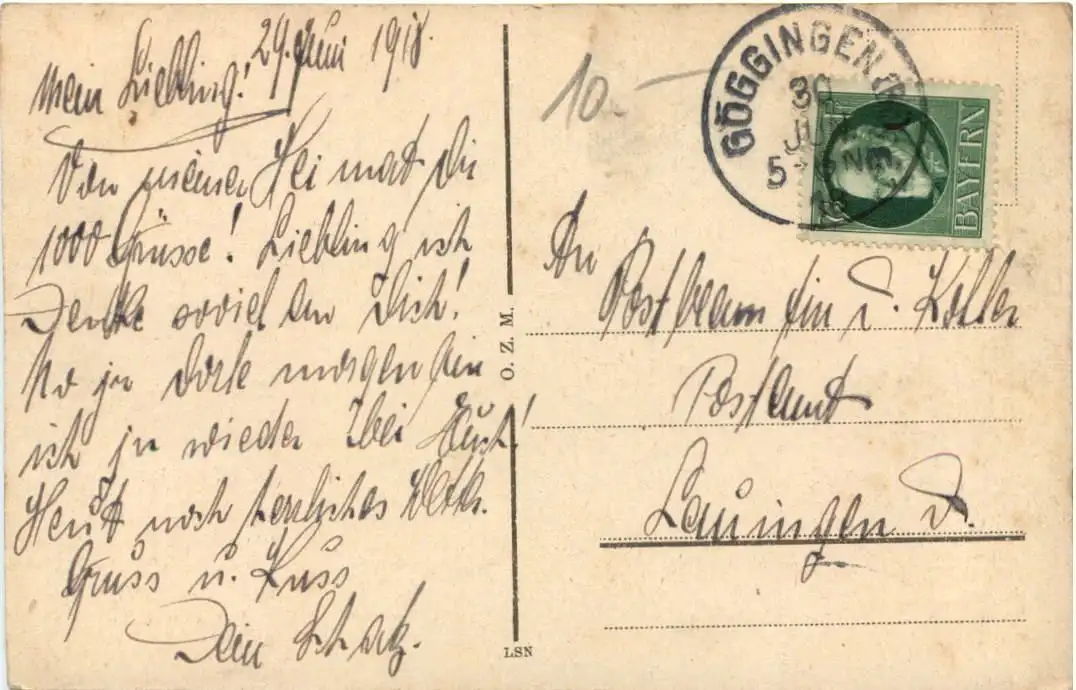 29. Juni 1918.
Mein Liebling!
Von meiner Heimat Dir
1000 Grüsse! Liebling ich
Denke soviel an Dich!
ja morgen bin
ich ja wieder bei Euch!
Heut noch herrliches Wetter.
Gruss u. Kuss
Dein Schatz.
O. Z. M.
LSN
10.-
GÖGGINGEN
30
JUN
5
NM
BAYERN
An
Postbeamtin
Postamt
Lauingen D.